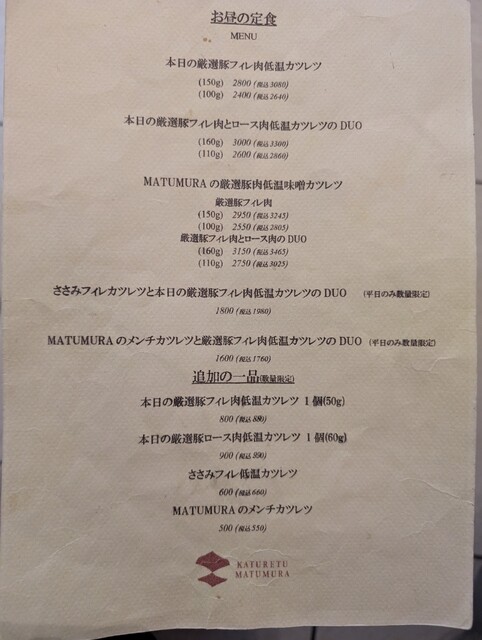 お昼の定食
MENU
本日の厳選豚フィレ肉低温カツレツ
(150g) 2800 (税込3080)
(100g) 2400 (税込2640)
本日の厳選豚フィレ肉とロース肉低温カツレツのDUO
(160g) 3000 (税込3300)
(110g) 2600 (税込2860)
MATUMURAの厳選豚肉低温味噌カツレツ
厳選豚フィレ肉
(150g) 2950 (税込3245)
(100g) 2550 (税込2805)
厳選豚フィレ肉とロース肉のDUO
(160g) 3150 (税込3465)
(110g) 2750 (税込3025)
ささみフィレカツレツと本日の厳選豚フィレ肉低温カツレツのDUO (平日のみ数量限定)
1800 (税込1980)
MATUMURAのメンチカツレツと厳選豚フィレ肉低温カツレツのDUO (平日のみ数量限定)
1600 (税込1760)
追加の一品(数量限定)
本日の厳選豚フィレ肉低温カツレツ 1個(50g)
800 (税込880)
本日の厳選豚ロース肉低温カツレツ 1個(60g)
900 (税込990)
ささみフィレ低温カツレツ
600 (税込660)
MATUMURAのメンチカツレツ
500 (税込550)
KATURETU
MATUMURA